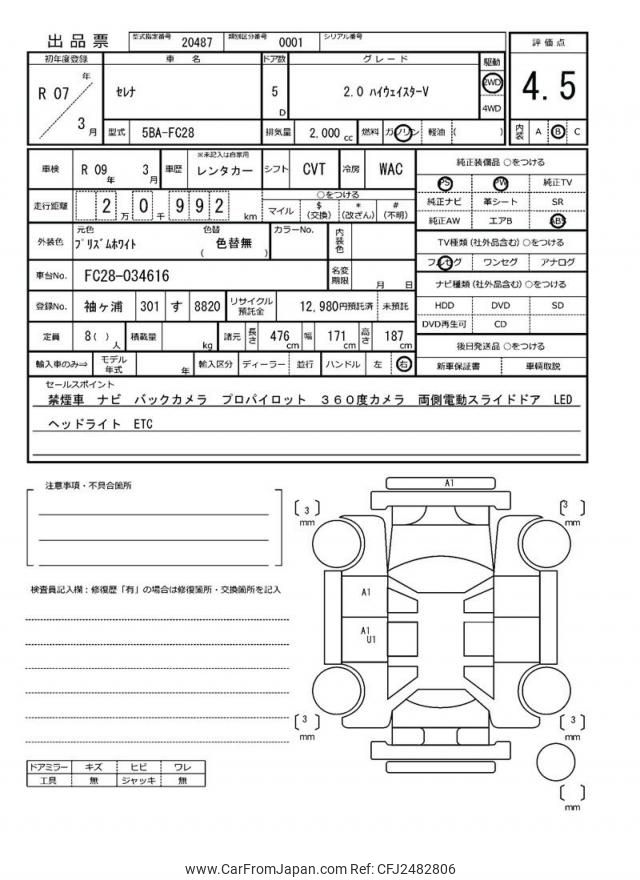 出品票 型式指定番号 20487 類別区分番号 0001 シリアル番号
評価点
4.5
内装 A B C
初年度登録 車名 ドア数 グレード 駆動
R 07 年 3 月 セレナ 5 D 2.0 ハイウェイスターV 2WD 4WD
型式 5BA-FC28 排気量 2,000 cc 燃料 ガソリン 軽油 ( )
車検 R 09 年 3 月 車歴 ※未記入は自家用 レンタカー シフト CVT 冷房 WAC
走行距離 2 万 0 千 9 9 2 km
○をつける
マイル $ (交換) * (改ざん) # (不明)
外装色 元色 プリズムホワイト 色替 色替無 ( ) カラーNo. 内装色
車台No. FC28-034616 名変期限 月 日
登録No. 袖ヶ浦 301 す 8820 リサイクル預託金 12,980円預託済 未預託
定員 8( ) 人 積載量 kg 諸元 長さ 476 cm 幅 171 cm 高さ 187 cm
輸入車のみ⇒ モデル年式 年 輸入区分 ディーラー 並行 ハンドル 左 右
純正装備品 ○をつける
PS PW 純正TV
純正ナビ 革シート SR
純正AW エアB ABS
TV種類(社外品含む) ○をつける
フルセグ ワンセグ アナログ
ナビ種類(社外品含む) ○をつける
HDD DVD SD
DVD再生可 CD
後日発送品 ○をつける
新車保証書 車輌取説
セールスポイント
禁煙車 ナビ バックカメラ プロパイロット 360度カメラ 両側電動スライドドア LED
ヘッドライト ETC
注意事項・不具合箇所
検査員記入欄:修復歴「有」の場合は修復箇所・交換箇所を記入
A1
3 mm
3 mm
A1
A1
U1
3 mm
3 mm
mm
ドアミラー キズ ヒビ ワレ
工具 無 ジャッキ 無
www.CarFromJapan.com Ref: CFJ2482806